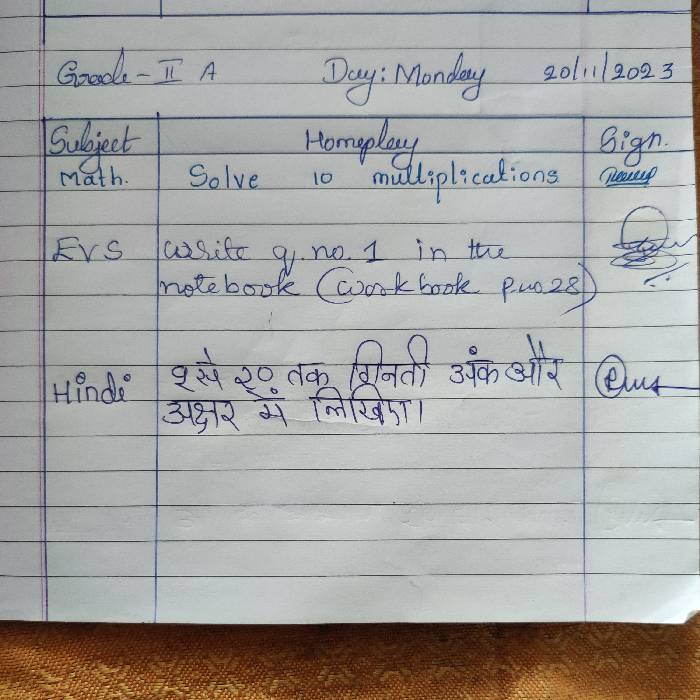 Grade - II A Day: Monday 20/11/2023
Subject Homeplay Sign.
Math. Solve 10 multiplications
EVS write q. no. 1 in the
notebook (workbook p.no.28)
Hindi १ से २० तक गिनती अंक और
अक्षर में लिखिए।